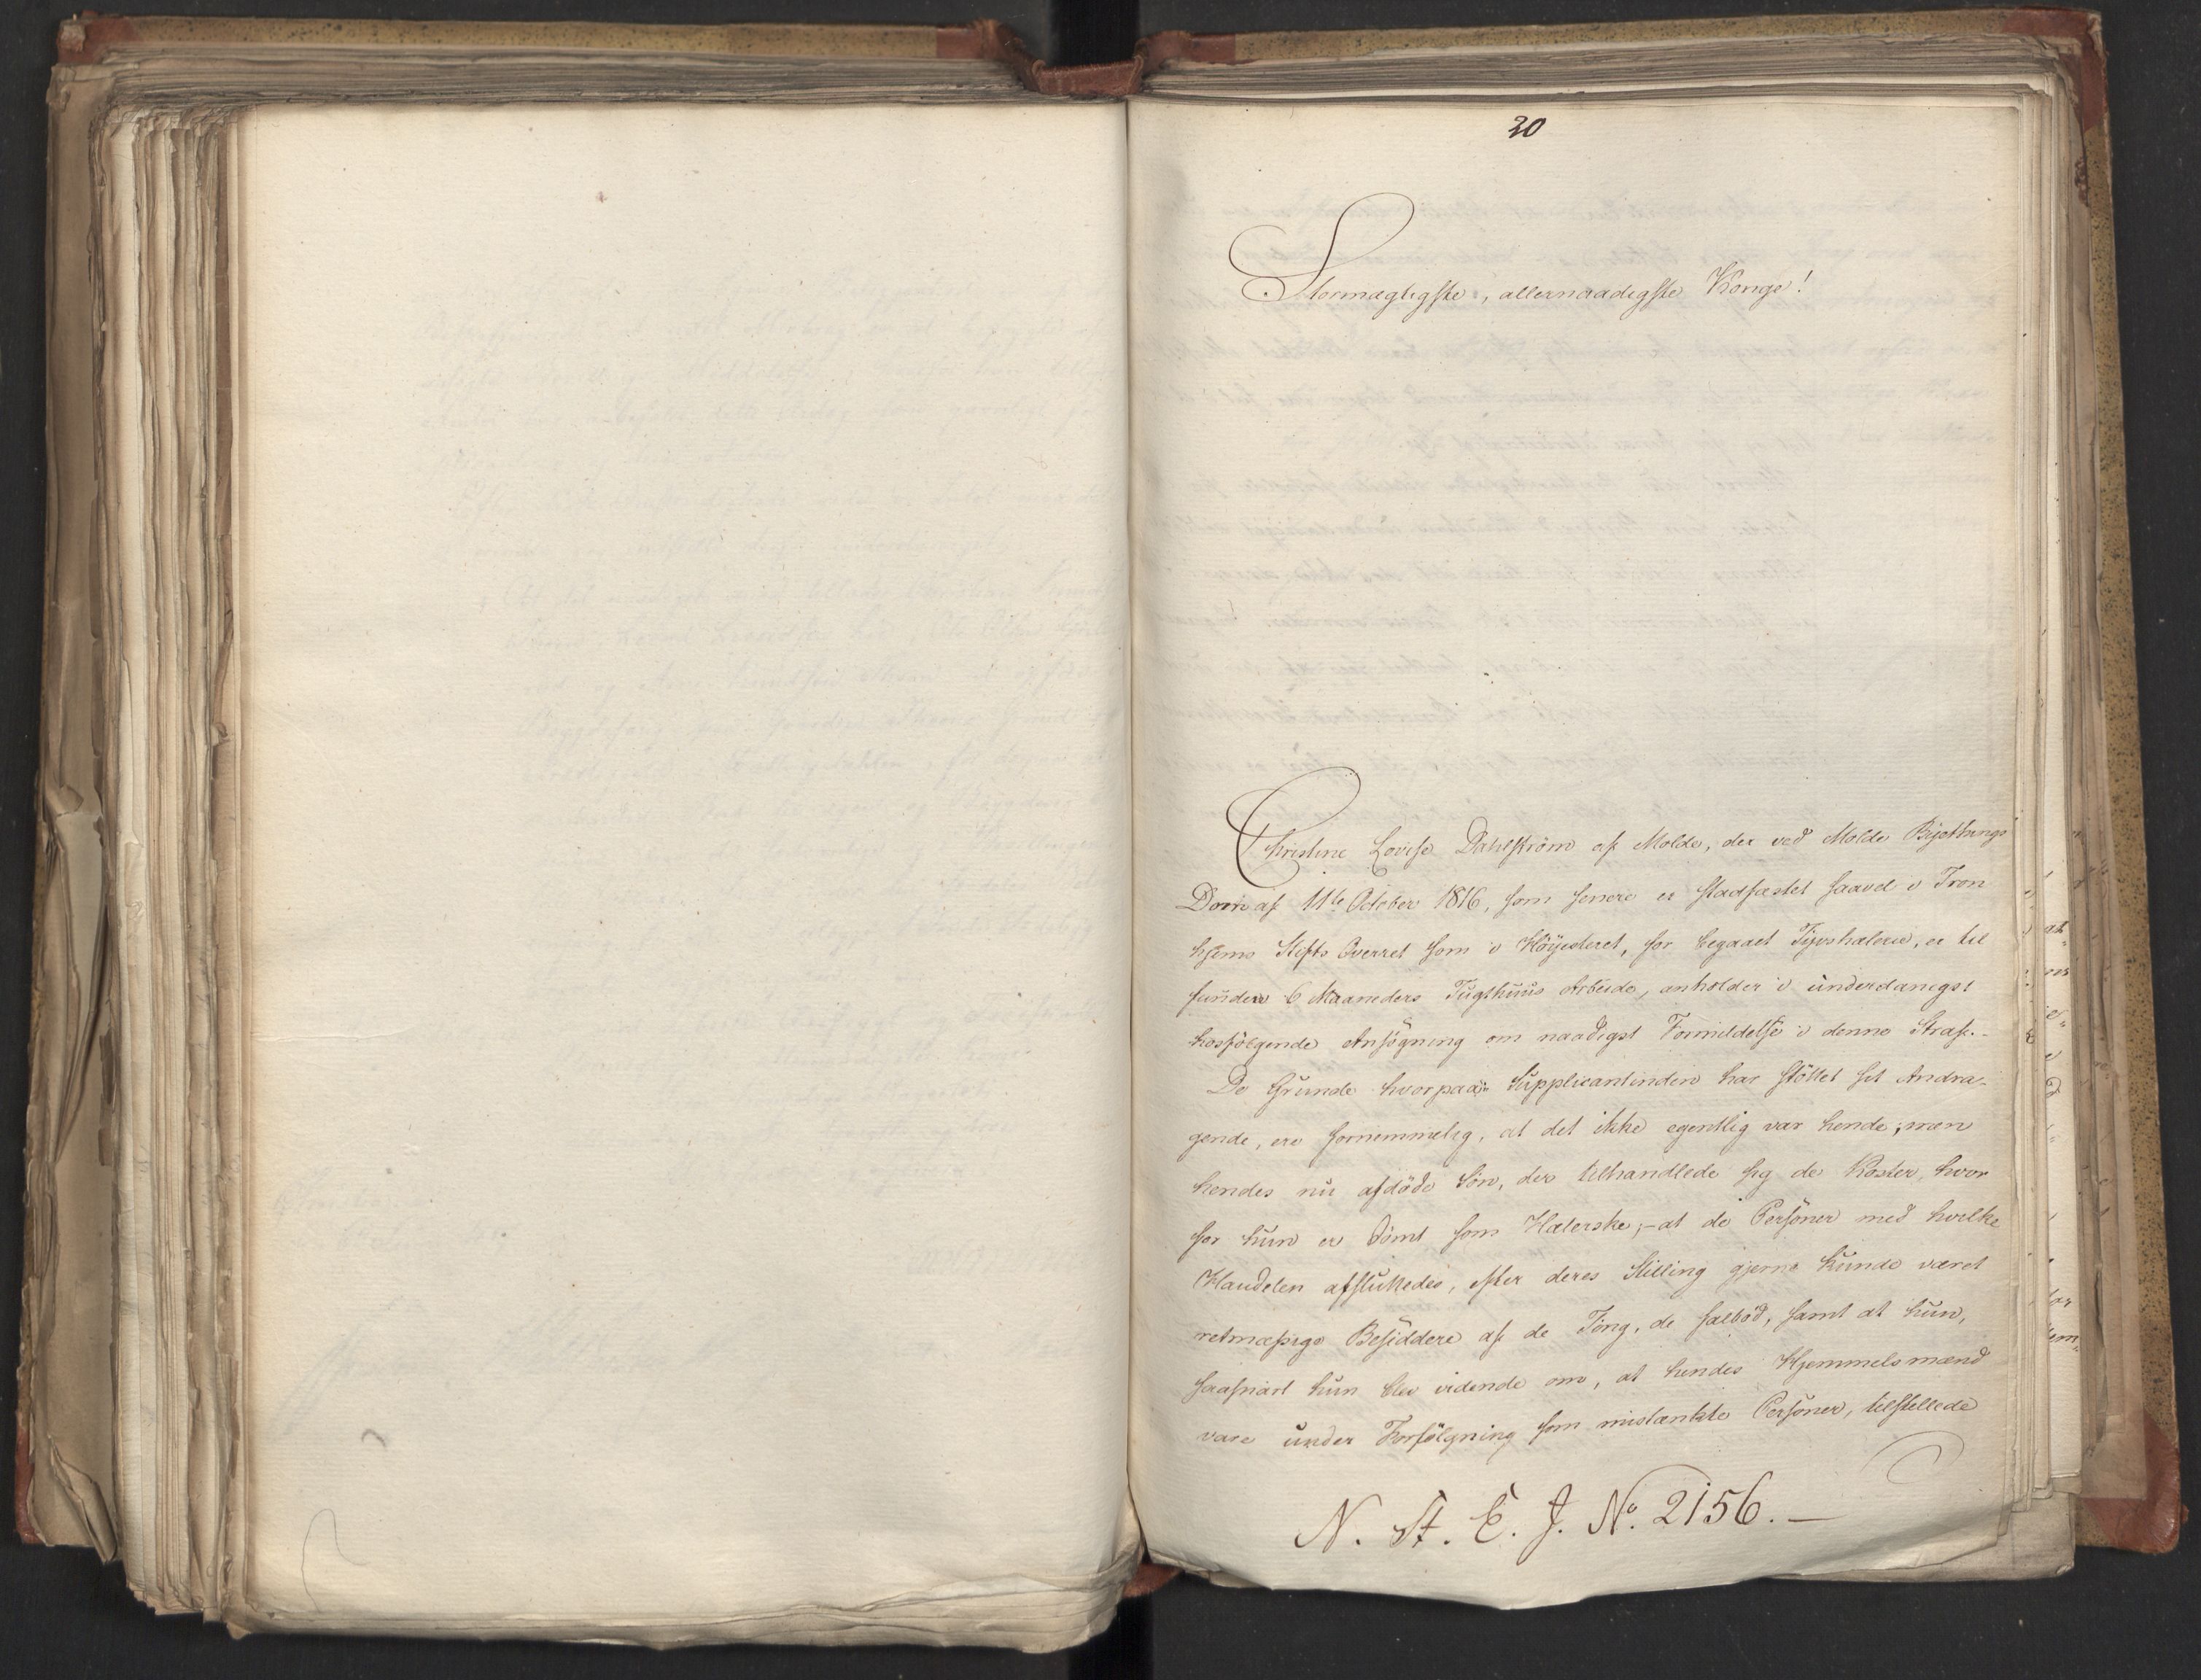 30
Stormægtigste, allernaadigste Konge!
Christine Lovise Dahlström af Molde, der ved Molde Byethings
Dom af 11te October 1816, som senere er stadfæstet saavel i Tron
hjems Stifts Overret som i Höyesteret, for begaaet Tyvshælerie, er til
funden 6 Maaneders Tugthuus Arbeide, anholder i underdanigst
hosfölgende Ansögning om naadigst Formildelse i denne Straf. -
De Grunde hvorpaa Supplicantinden har stöttet sit Andra-
gende, ere fornemmelig, at det ikke egentlig var hende, men
hendes nu afdöde Sön, der tilhandlede sig de Koster, hvor
for hun er dömt som Hælerske, - at de Personer med hvilke
Handelen afsluttedes, efter deres Stilling gjerne kunde været
retmæssige Besiddere af de Ting, de falböd, samt at hun,
saasnart hun blev vidende om, at hendes Hjemmelsmænd
vare under Forfölgning som mistænkte Personer, tilstillede
N. St. E. J. No. 2156. -